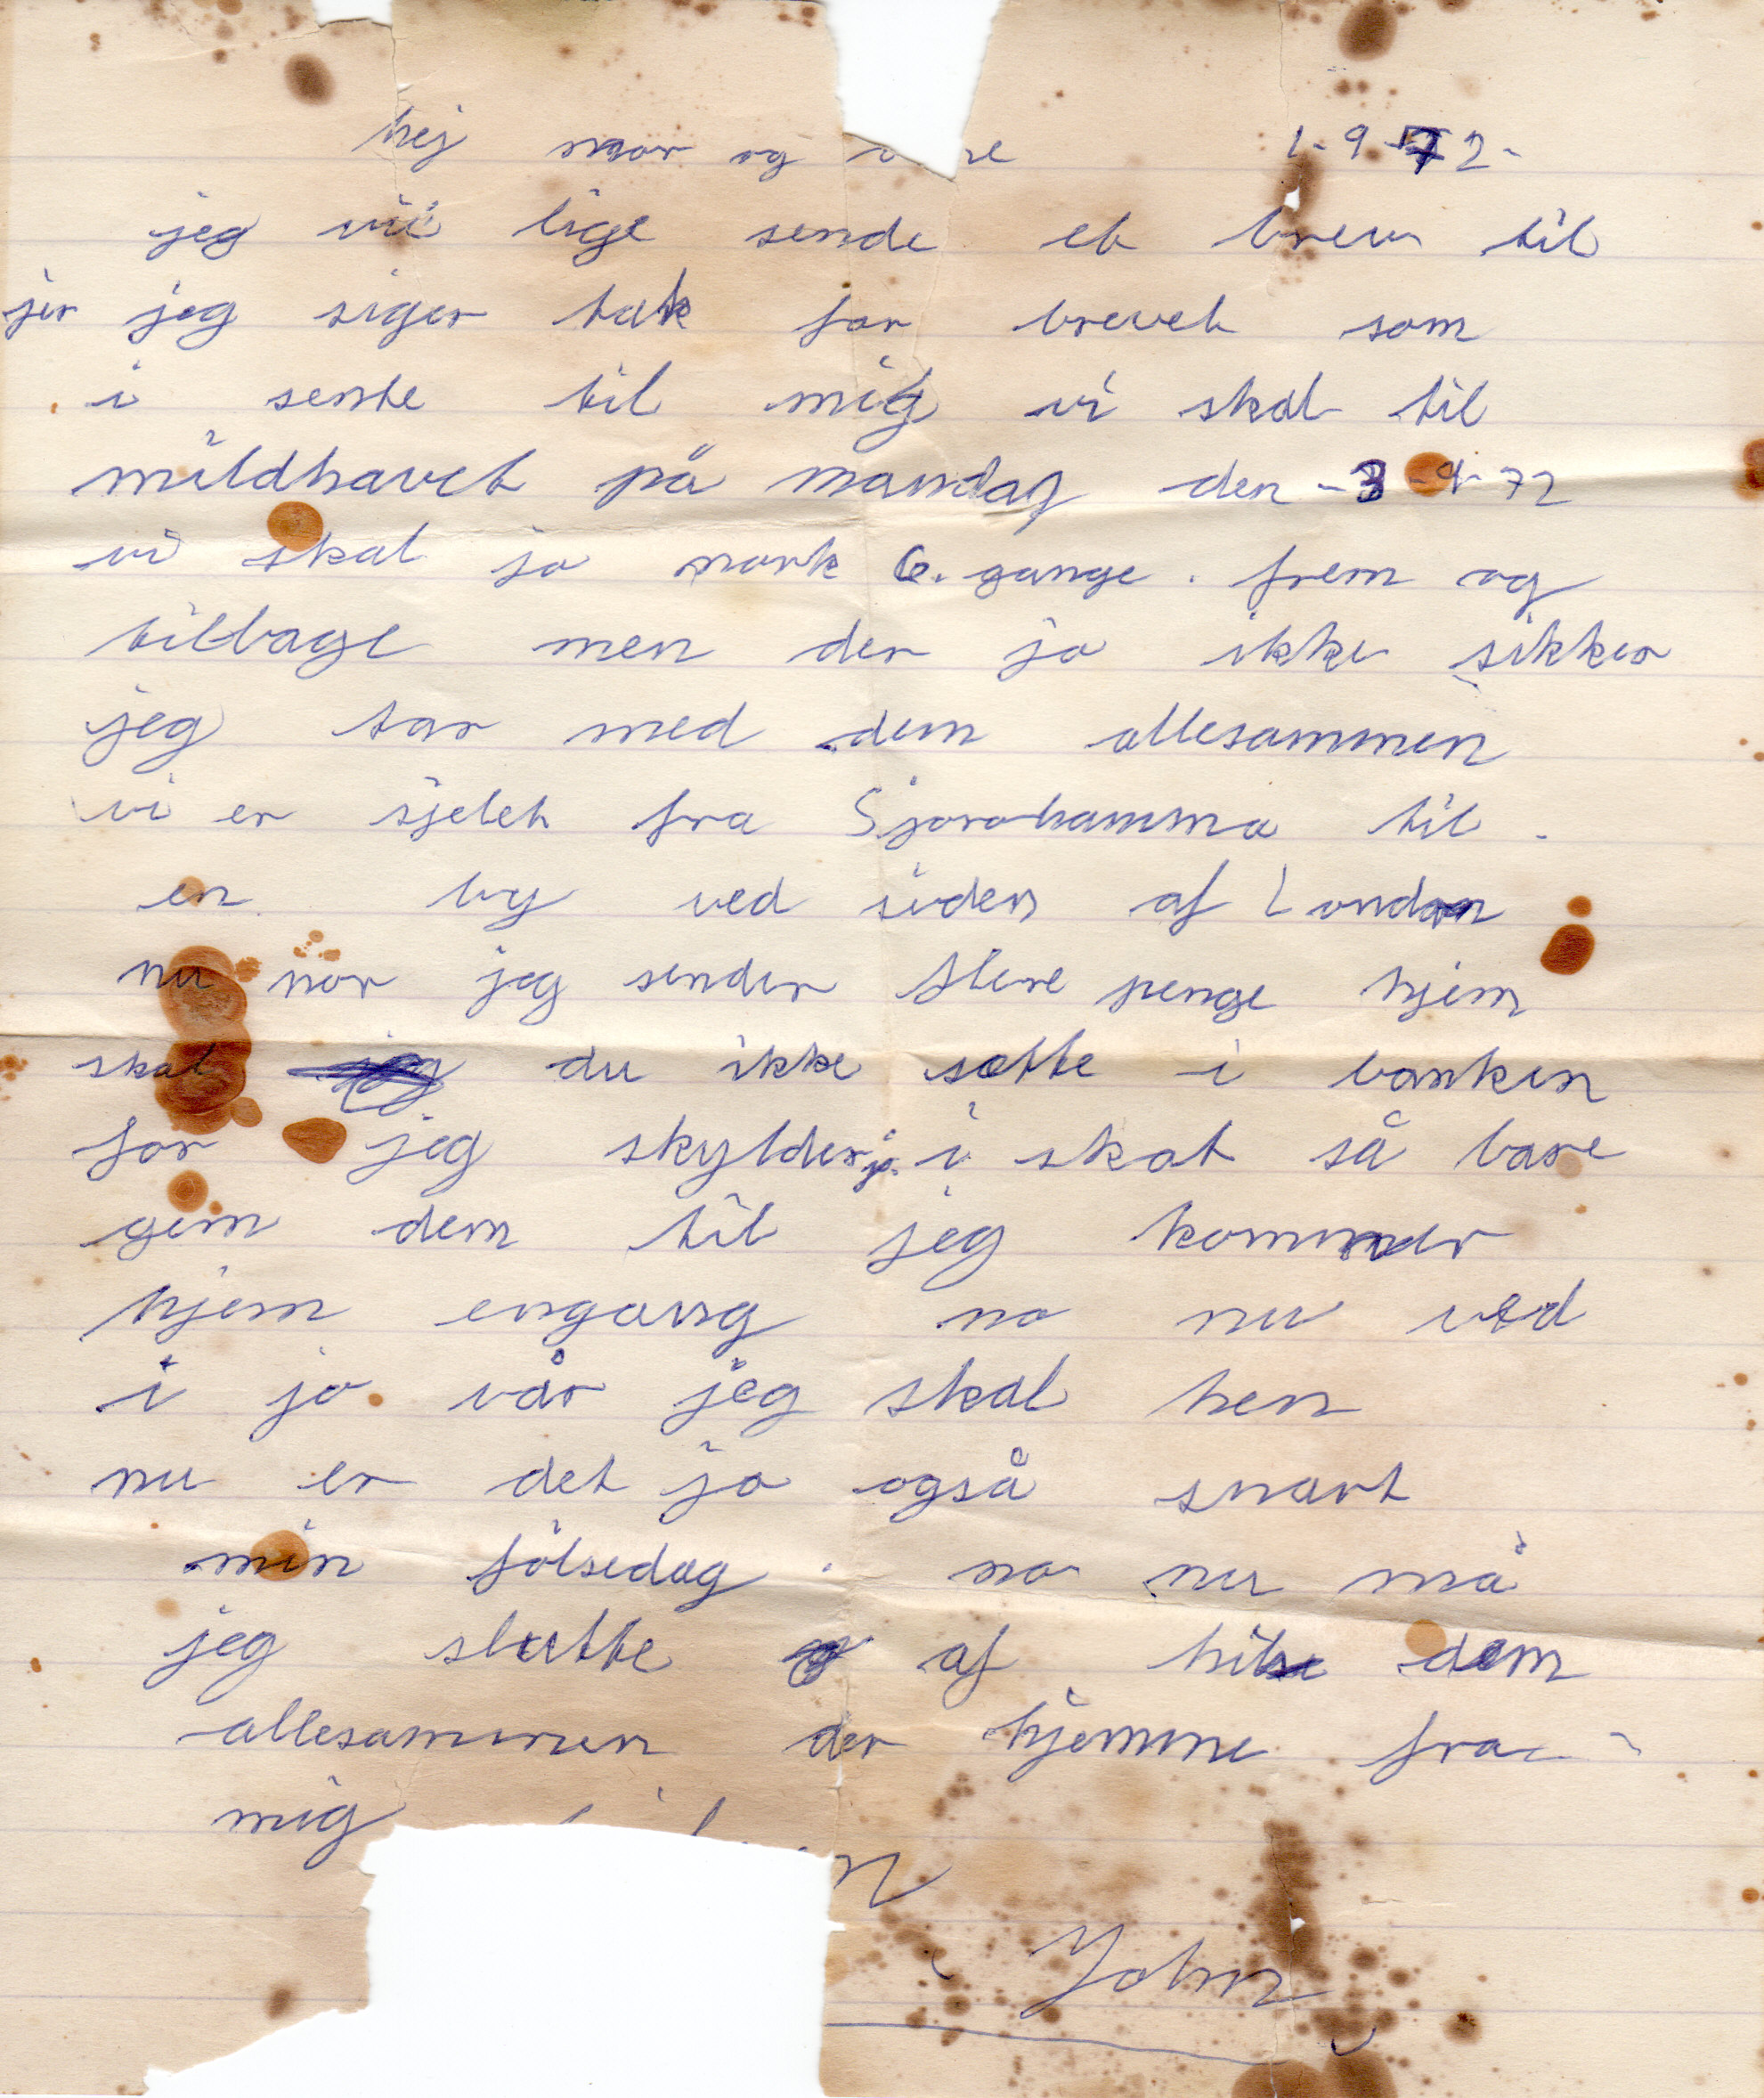 hej mor og 1-9-72-
jeg vil lige sende et brev til
jer jeg siger tak for brevet som
i sente til mig vi skal til
mildhavet på mandag den -3-9-72
vi skal jo nork 6. gange. frem og
tilbage men der jo ikke sikker
jeg tar med dem allesammen
vi er sjelet fra Sjorohamma til
en by ved siden af London
nu nor jeg sender flere penge hjem
skal du ikke sætte i banken
for jeg skylder jo i skat så bare
gem dem til jeg kommer
hjem engang no nu ved
i jo vår jeg skal hen
nu er det jo også snart
min fölsedag. no nu må
jeg slutte af hilse dem
allesammen der hjemme fra
mig
John